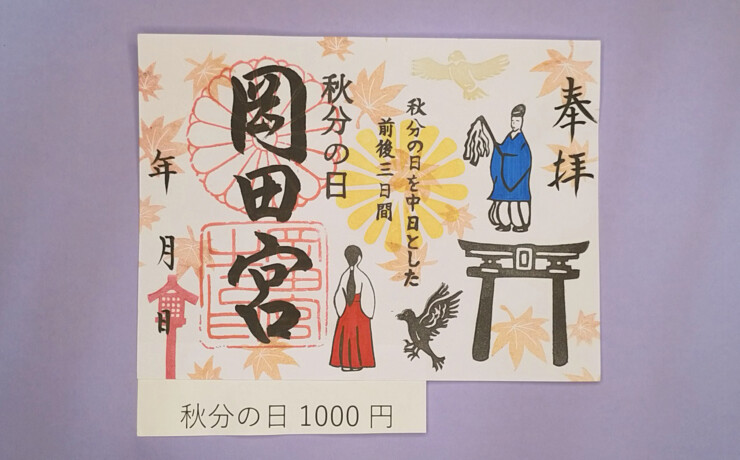 奉拝
秋分の日を中日とした
前後三日間
秋分の日
岡田宮
年 月 日
秋分の日 1000 円